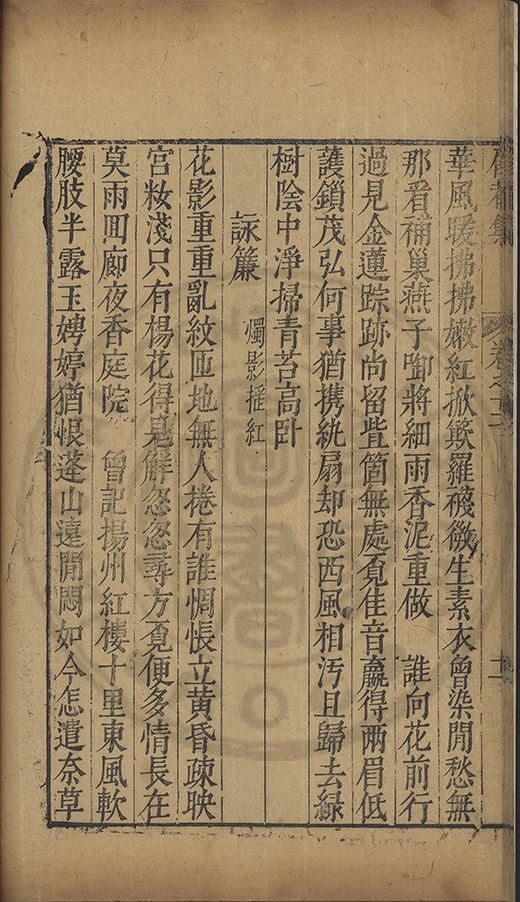 華風暖拂拂嫩紅掀簌羅襪微生素衣曾染閒愁無
那看補巢燕子啣將細雨香泥重做　誰向花前行
過見金蓮踪跡尚留些箇無處覓佳音羸得兩眉低
護鎖茂弘何事猶携紈扇却恐西風相汚且歸去緑
樹陰中淨掃青苔高卧
詠簾　燭影摇紅
花影重重亂紋匝地無人捲有誰惆悵立黄昏疎映
宫妝淺只有楊花得見解忽忽尋方覓便多情長在
莫雨囬廊夜香庭院　曾記揚州紅樓十里東風軟
腰肢半露玉娉婷猶恨蓬山遠閒悶如今怎遣奈草